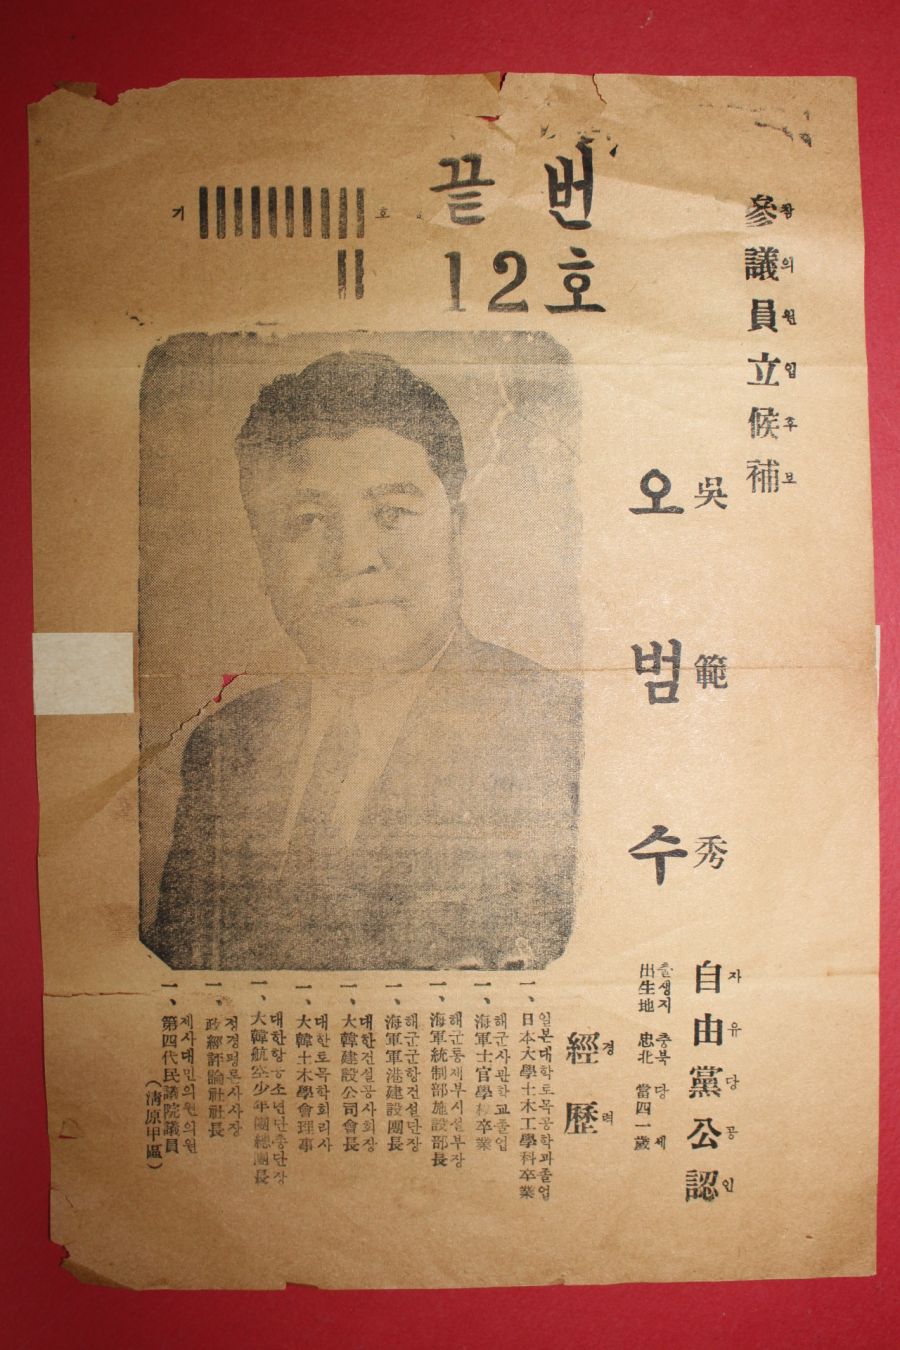 參議員立候補
참의원입후보
끝번
12호
기호
吳範秀
오범수
自由黨公認
자유당공인
출생지 충북 당 세
出生地 忠北 當四一歲
經歷
경력
일본대학토목공학과졸업
一、日本大學土木工學科卒業
해군사관학교졸업
一、海軍士官學校卒業
해군통제부시설부장
一、海軍統制部施設部長
해군군항건설단장
一、海軍軍港建設團長
대한건설공사회장
一、大韓建設公司會長
대한토목학회리사
一、大韓土木學會理事
대한항공소년단총단장
一、大韓航空少年團總團長
정경평론사사장
一、政經評論社社長
제사대민의원의원
一、第四代民議院議員
(淸原甲區)